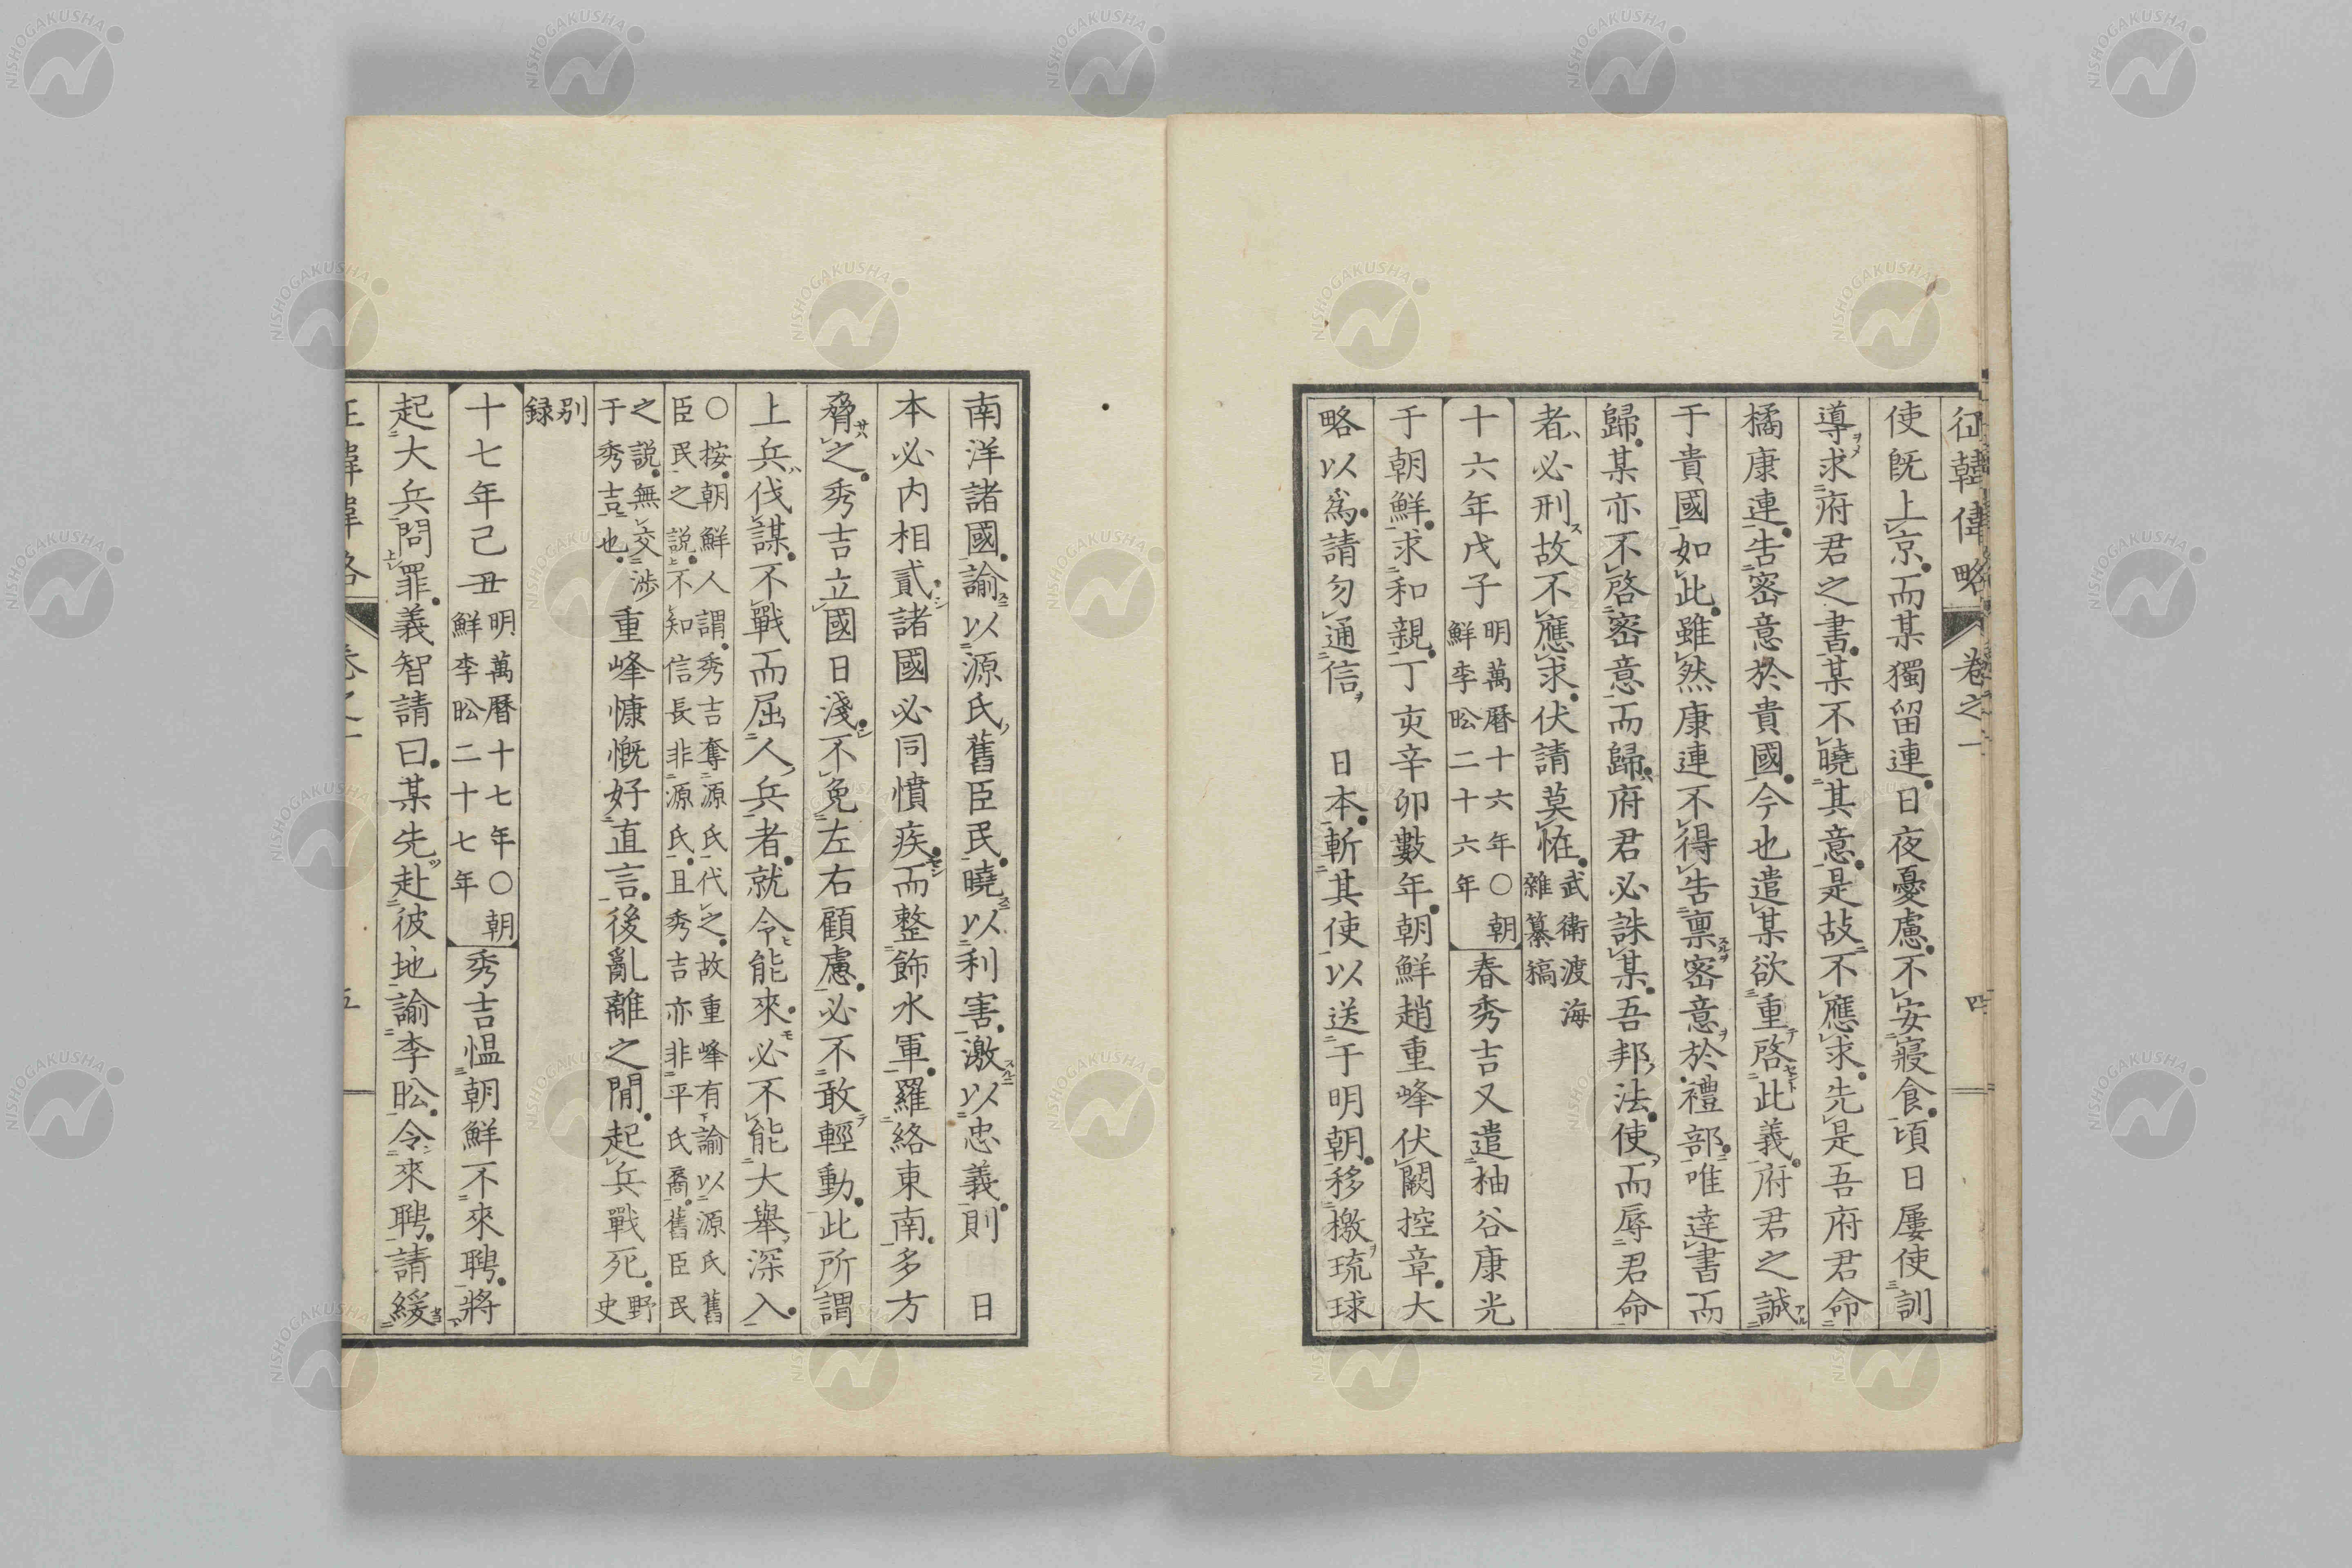 征韓偉略 卷之一 四
使既上京而某獨留連日夜憂慮不安寢食頃日屢使訓
導求府君之書某不曉其意是故不應求先是吾府君命
橘康連告密意於貴國今也遣某欲重啓此義府君之誠
于貴國如此雖然康連不得告稟密意於禮部唯達書而
歸某亦不啓密意而歸府君必誅某吾邦法使而辱君命
者必刑故不應求伏請莫恠武衛渡海雜纂稿
十六年戊子明萬曆十六年○朝鮮李昖二十六年春秀吉又遣柚谷康光
于朝鮮求和親丁亥辛卯數年朝鮮趙重峰伏闕控章大
略以爲請勿通信 日本斬其使以送于明朝移檄琉球
南洋諸國諭以源氏舊臣民曉以利害激以忠義則 日
本必内相貳諸國必同憤疾而整飾水軍羅絡東南多方
脅之秀吉立國日淺不免左右顧慮必不敢輕動此所謂
上兵伐謀不戰而屈人兵者就令能來必不能大舉深入
○按朝鮮人謂秀吉奪源氏代之故重峰有諭以源氏舊
臣民之説不知信長非源氏且秀吉亦非平氏裔舊臣民
之説無交渉于秀吉也重峰慷慨好直言後亂離之間起兵戰死野史
別録
十七年己丑明萬曆十七年○朝鮮李昖二十七年秀吉慍朝鮮不來聘將
起大兵問罪義智請曰某先赴彼地諭李昖令來聘請緩
征韓偉略 卷之一 五
NISHOGAKUSHA